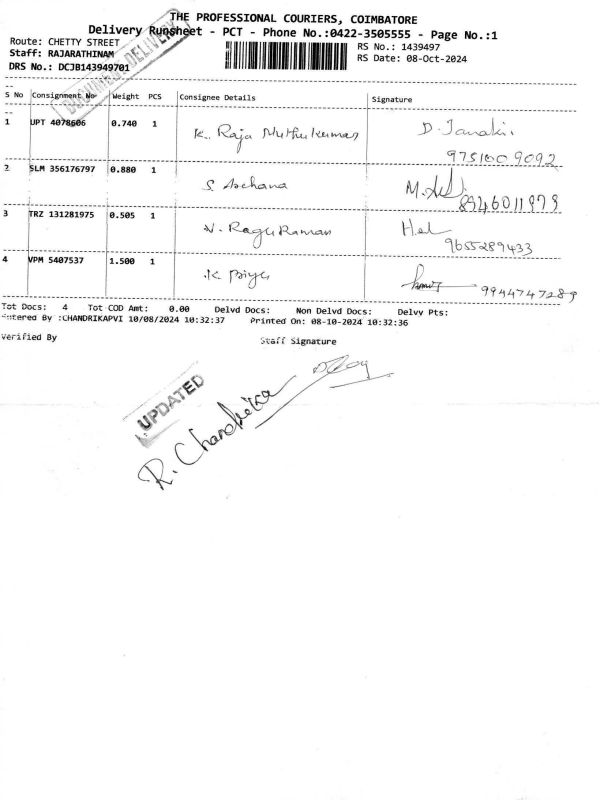 THE PROFESSIONAL COURIERS, COIMBATORE
Delivery Runsheet - PCT - Phone No.:0422-3505555 - Page No.:1
Route: CHETTY STREET
RS No.: 1439497
Staff: RAJARATHINAM
RS Date: 08-Oct-2024
DRS No.: DCJB143949701
DELIVERY
S No Consignment No Weight PCS Consignee Details Signature
1 UPT 4078606 0.740 1 K. Raja Muthukumar D. Janaki
9751009092
2 SLM 356176797 0.880 1 S Archana M.
8946011979
3 TRZ 131281975 0.505 1 N. Raguraman
9655289433
4 VPM 5407537 1.500 1 K Priya
9944747289
Tot Docs: 4 Tot COD Amt: 0.00 Delvd Docs: Non Delvd Docs: Delvv Pts:
Entered By :CHANDRIKAPVI 10/08/2024 10:32:37 Printed On: 08-10-2024 10:32:36
Verified By Staff Signature
UPDATED
R. Chandrika